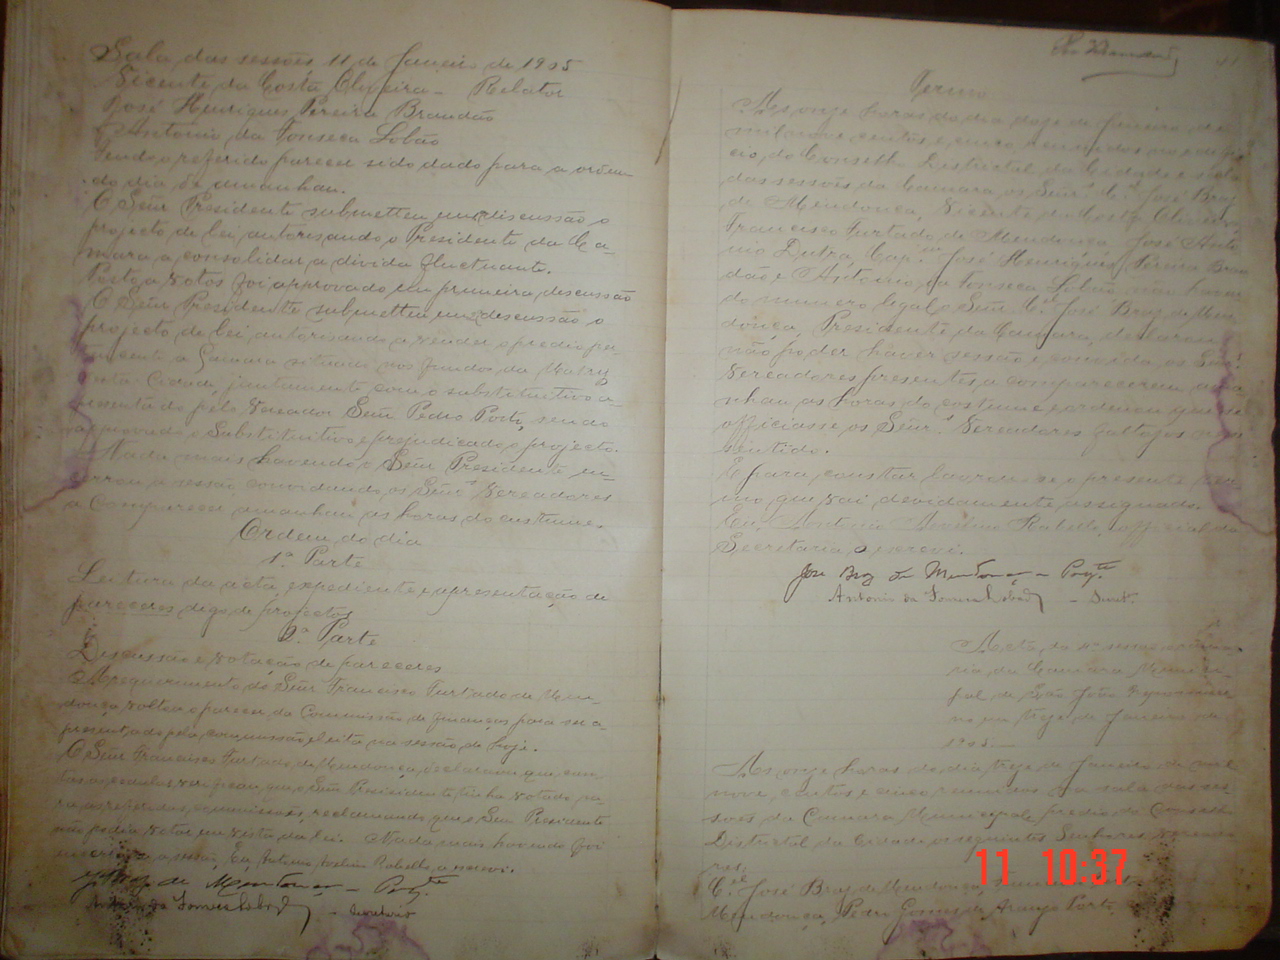 Sala das sessões 11 de Janeiro de 1905
Vicente da Costa Oliveira - Relator
José Henriques Pereira Brandão
Antonio da Fonseca Lobão
Tendo o referido parecer sido dado para a ordem
do dia de amanhan.
O Senr Presidente submetteu em discussão o
projecto de lei autorisando o Presidente da Ca-
mara a consolidar a divida fluctuante.
Posto a votos foi approvado em primeira discussão
O Senr Presidente submetteu em discussão o
projecto de lei autorisando a vender o predio per-
tencente a Camara situado nos fundos da Matriz
desta Cidade, juntamente com o substitutivo a-
presentado pelo Vereador Senr Pedro Porto, sendo
approvado o Substitutivo e prejudicado o projecto.
Nada mais havendo o Senr Presidente en-
cerrou a sessão convidando os Senrs Vereadores
a comparecer amanhan as horas do custume.
Ordem do dia
1ª Parte
Leitura da acta, expediente e apresentação de
pareceres digo de projectos
2ª Parte
Discussão e votação de pareceres
A requerimento do Senr Francisco Furtado de Men-
donça voltou o parecer da Commissão de finanças para ser a-
presentado pela commissão eleita na sessão de hoje.
O Senr Francisco Furtado de Mendonça, declarou que
as cedulas que o Senr Presidente tinha votado pa-
ra as referidas commissões, reclamando que o Senr Presidente
não podia votar em vista da lei. Nada mais havendo foi
a sessão, Eu, Antonio Avelino Rabello, o escrevi.
J. Braz de Mendonça - Presidte
Antonio da Fonseca Lobão - Secretario
41
Termo
As onze horas do dia doze de Janeiro de
mil nove centos e cinco, reunidos no edifi-
cio do Conselho Districtal da Cidade e sala
das sessões da Camara, os Senrs Cel José Braz
de Mendonça, Vicente da Costa Oliveira,
Francisco Furtado de Mendonça, José Anto-
nio Dutra, Capm José Henriques Pereira Bran-
dão e Antonio da Fonseca Lobão, não haven-
do numero legal o Senr Cel José Braz de Men-
donça, Presidente da Camara, declarou
não poder haver sessão e convida os Senrs
Vereadores presentes a comparecerem ama-
nhan as horas do costume e ordenou que se
officiasse os Senrs Vereadores faltosos nesse
sentido.
E para constar lavrou-se o presente ter-
mo que vai devidamente assignado.
Eu, Antonio Avelino Rabello, official da
Secretaria, o escrevi.
José Braz de Mendonça - Presidte
Antonio da Fonseca Lobão - Secret.
Acta da 4ª sessão ordina-
ria da Camara Munici-
pal de São João Nepomuce-
no em treze de Janeiro de
1905.
As onze horas do dia treze de Janeiro de mil
nove centos e cinco reunidos na sala das ses-
sões da Camara Municipal e predio do Conselho
Districtal da Cidade os seguintes Senhores Vereado-
res:
Cel José Braz de Mendonça,
Mendonça, Pedro Gomes de Araujo Porto
11 10:37